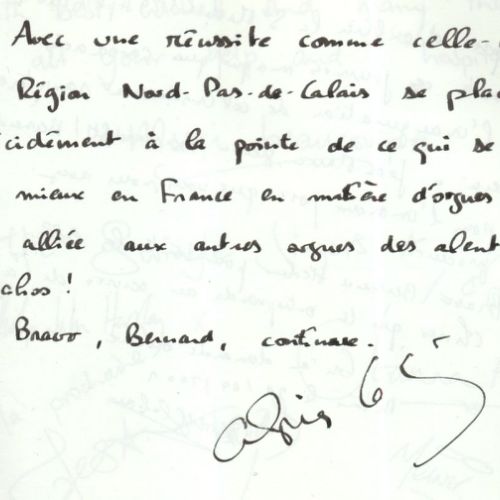 Avec une réussite comme celle-
Région Nord-Pas-de-Calais se plac
cidément à la pointe de ce qui se
mieux en France en matière d'orgues
alliée aux autres orgues des alent
chos !
Bravo, Bernard, continue.